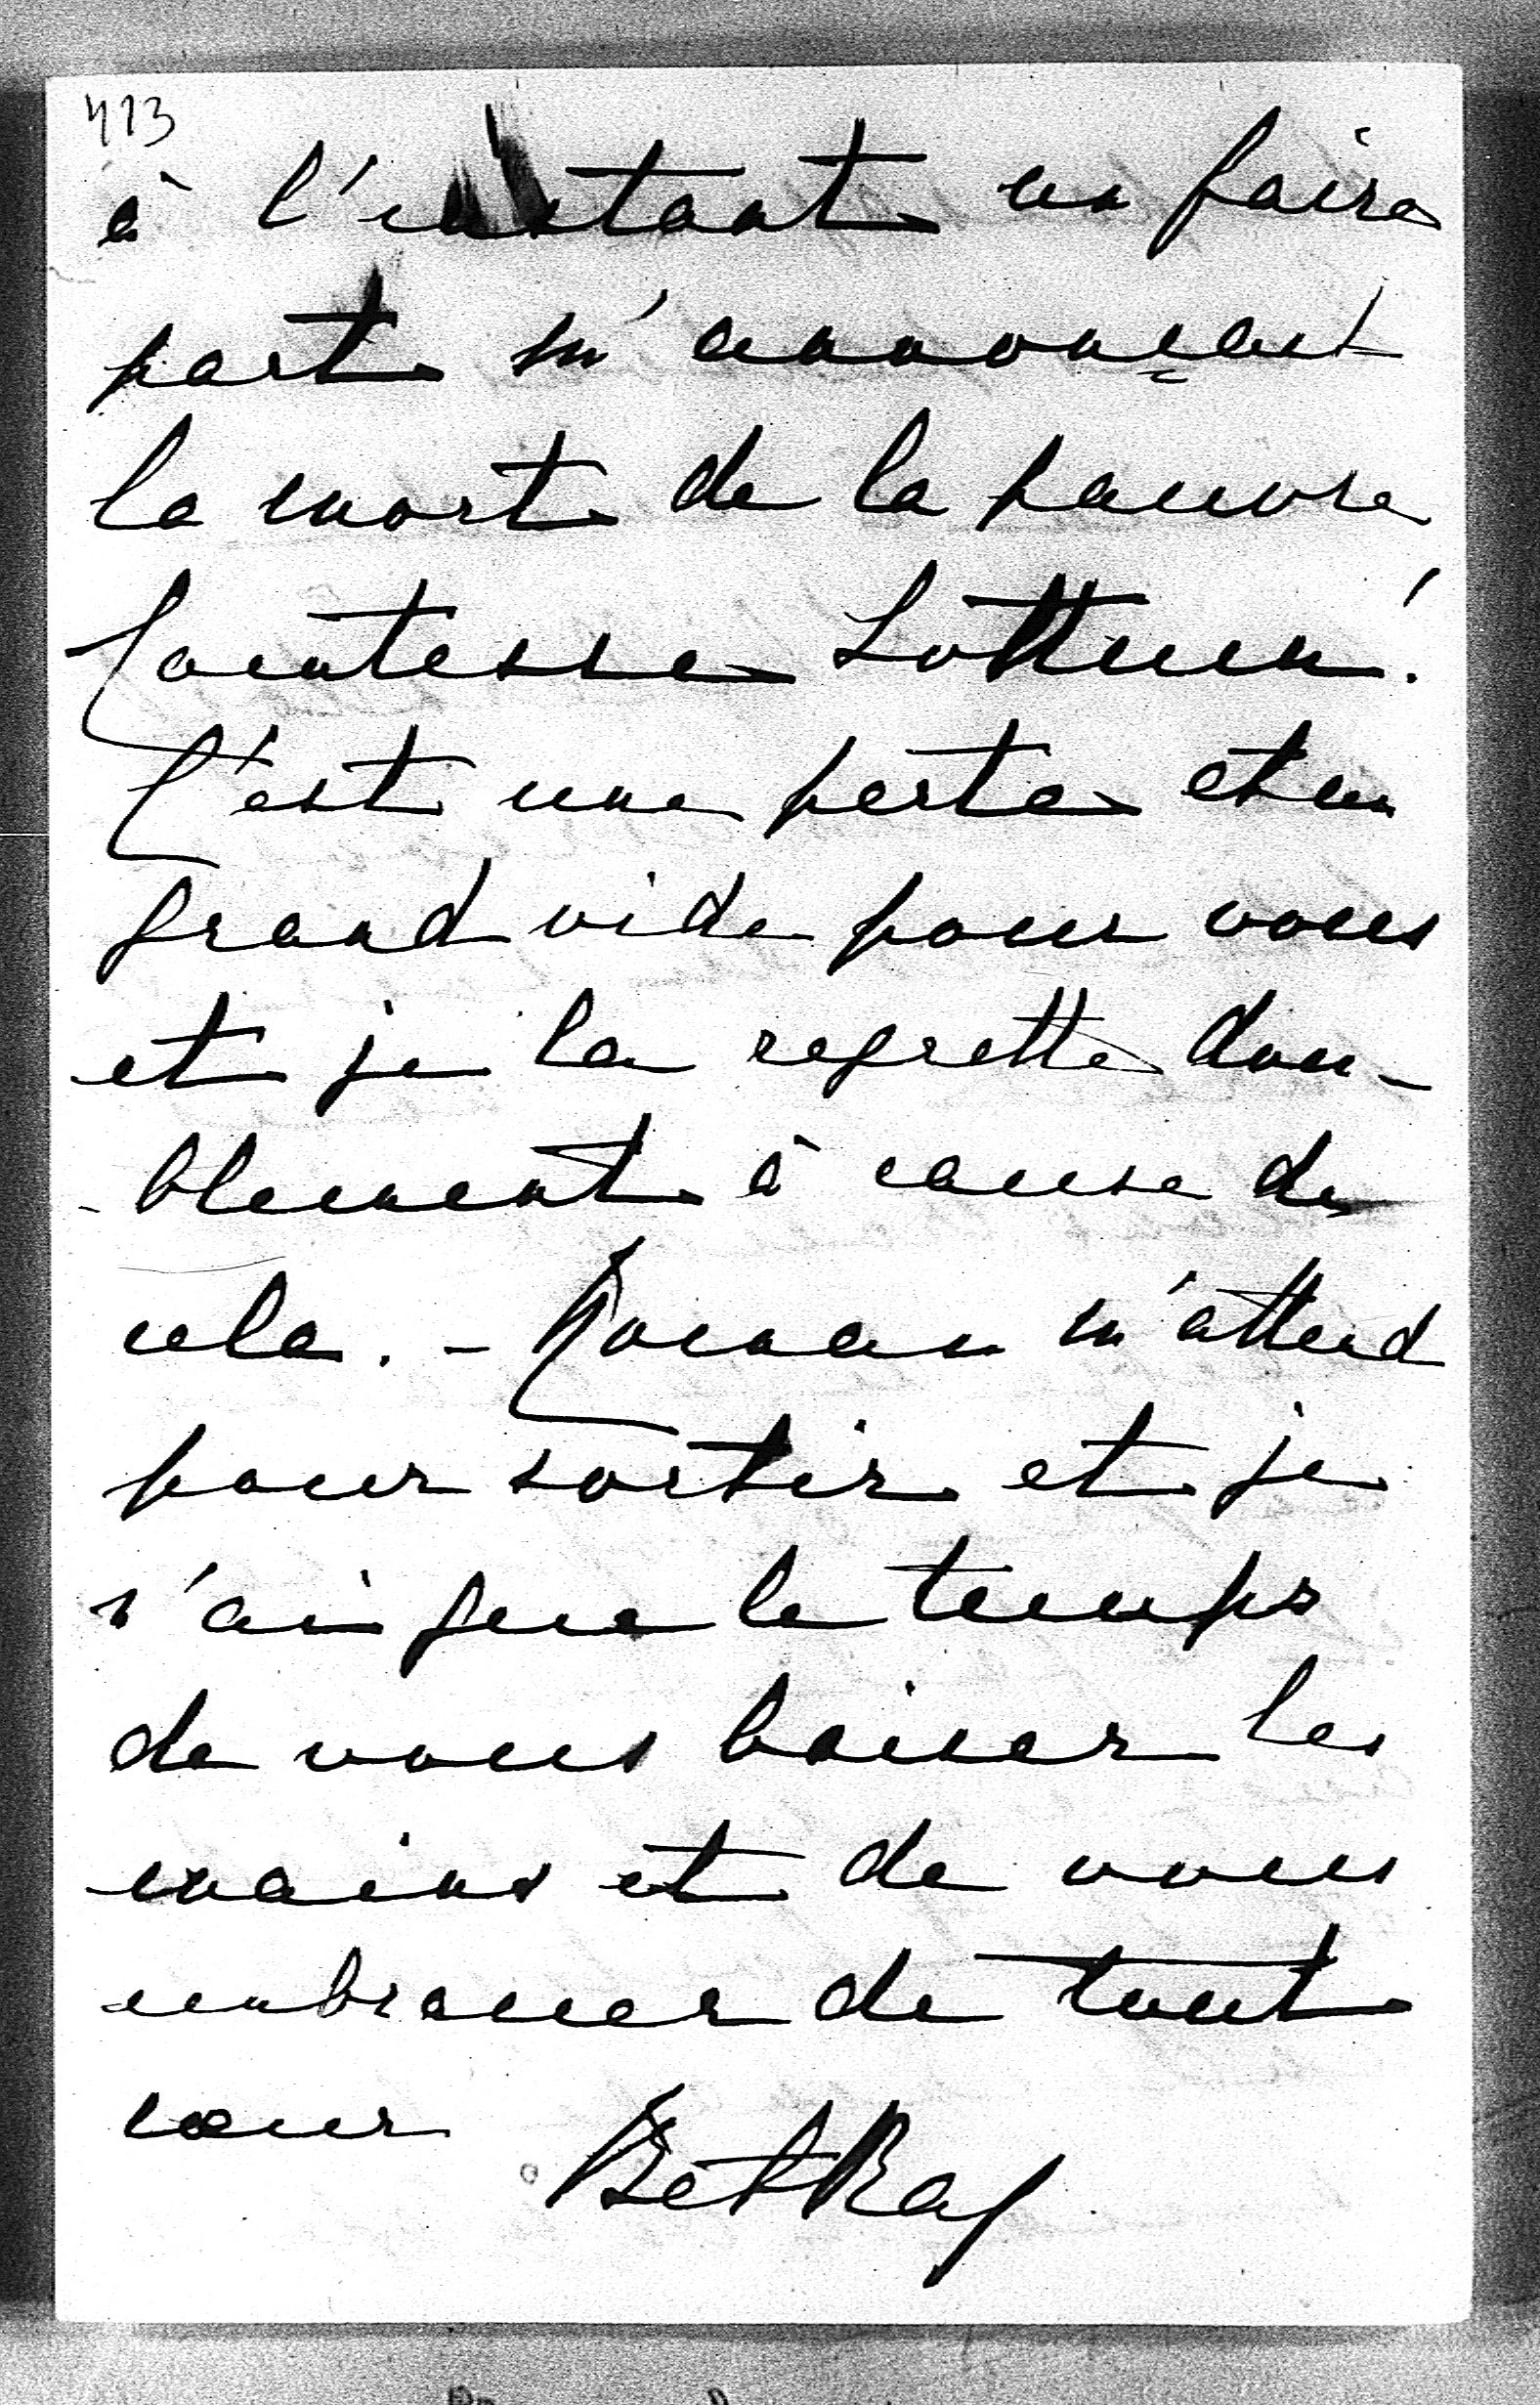 413
à l'instant un faire
part m'annonçant
la mort de la pauvre
Comtesse Lottum!
C'est une perte et un
grand vide pour vous
et je la regrette dou-
-blement à cause de
cela. - Roman m'attend
pour sortir et je
n'ai que le temps
de vous baiser les
mains et de vous
embrasser de tout
cœur BetRaz